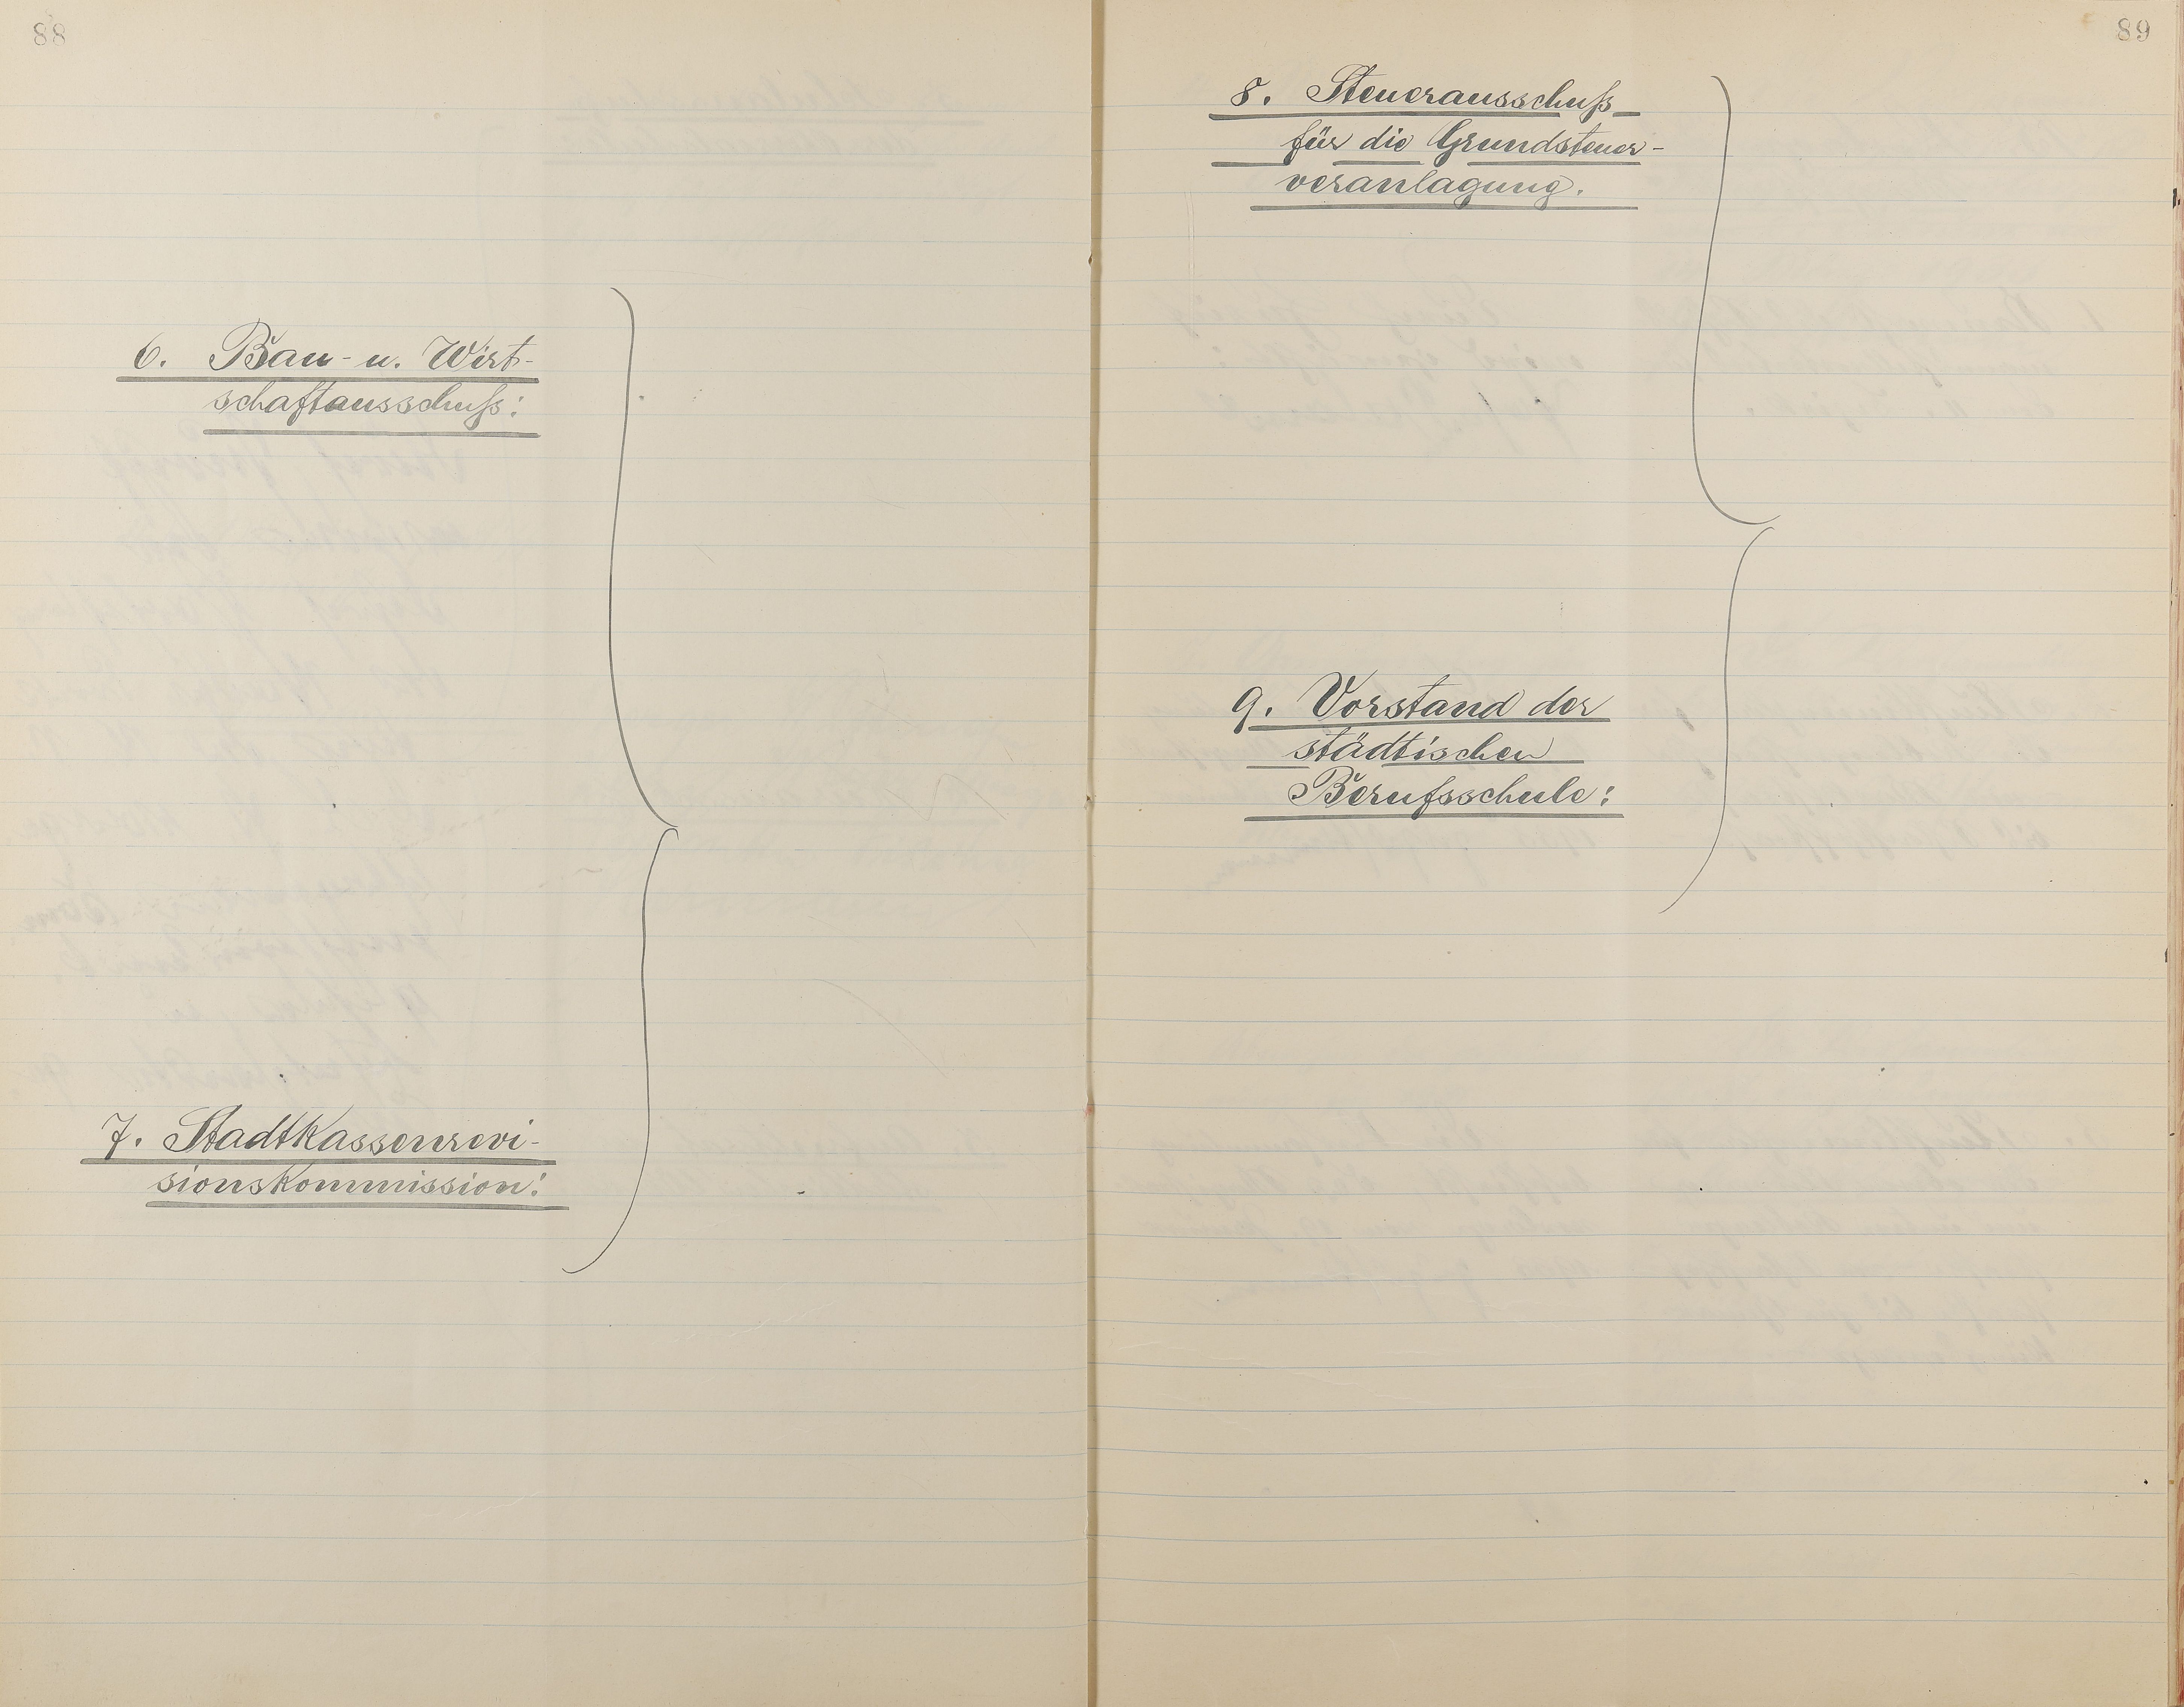 88
6. Bau- u. Wirt-
schaftausschuß:
7. Stadtkassenrevi-
sionskommission:
89
8. Steuerausschuß
für die Grundsteuer-
veranlagung.
9. Vorstand der
städtischen
Berufsschule: